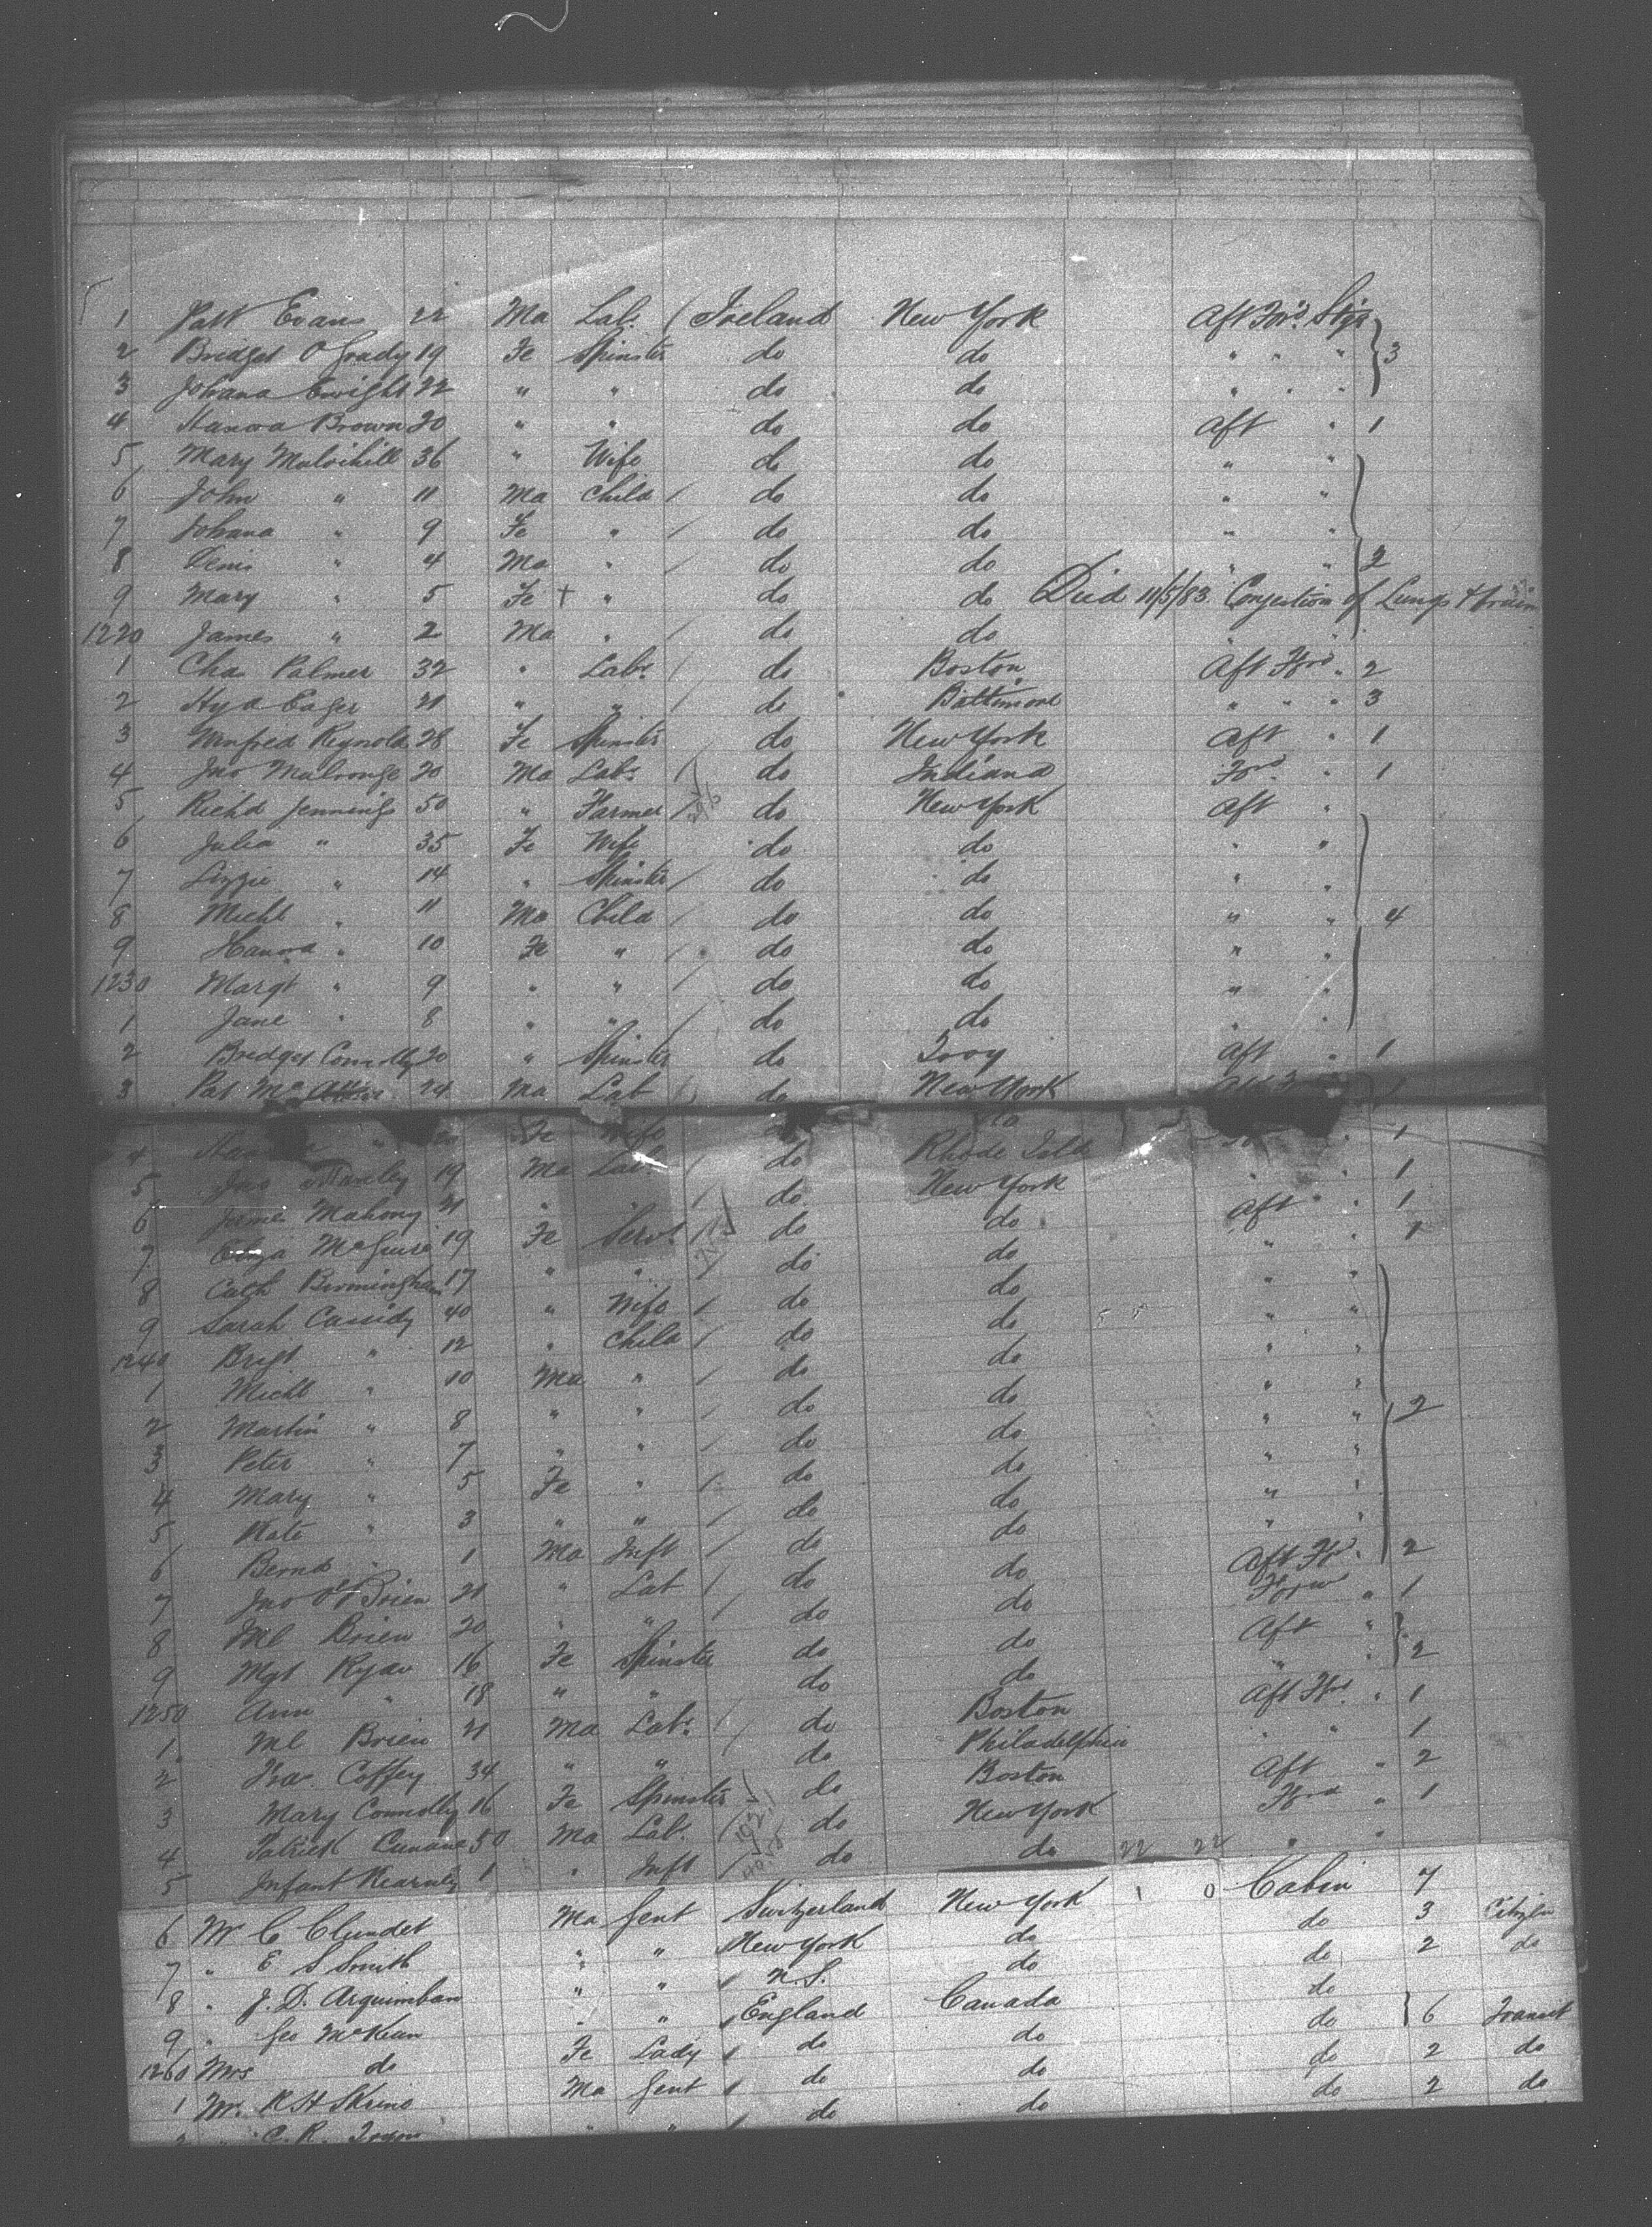 1 Patt Evans 22 Ma Labr Ireland New York Aft Ford Stge
2 Bridget O Grady 19 Fe Spinster do do " " " 3
3 Johana Enright 22 " " do do " " "
4 Hanora Brown 20 " " do do Aft " 1
5 Mary Mulvihill 36 " Wife do do " "
6 John " 11 Ma Child do do " "
7 Johana " 9 Fe " do do " "
8 Denis " 4 Ma " do do " " 2
9 Mary " 5 Fe + " do do Died 11/5/83 Congestion of Lungs & brain
1220 James " 2 Ma " do do " "
1 Chas Palmer 32 " Labr do Boston Aft Ford " 2
2 Hyd Eager 21 " " do Baltimore " " " 3
3 Winfred Reynolds 28 Fe Spinster do New York Aft " 1
4 Jno 20 Ma Labr do Indiana Ford " 1
5 Richd Jennings 50 " Farmer do New York Aft "
6 Julia " 35 Fe Wife do do " "
7 Lizzie " 14 " Spinster do do " "
8 Michl " 11 Ma Child do do " " 4
9 Hanora " 10 Fe " do do " "
1230 Margt " 9 " " do do " "
1 Jane " 8 " " do do " "
2 Bridget Connolly 20 " Spinster do Troy Aft " 1
3 Pat Mc 24 Ma Lab do New York 1
4 " Fe Wife do
5 Jno 19 Ma Labr do Rhode Isld " 1
6 James Mahony 21 " do New York " 1
7 Eliza McGuire 19 Fe Servt do do Aft " 1
8 Cath Birmingham 17 " " do do " 1
9 Sarah Cassidy 40 " Wife do do " "
1240 Brigt " 12 " Child do do " "
1 Michl " 10 Ma " do do " "
2 Martin " 8 " " do do " " 2
3 Peter " 7 " " do do " "
4 Mary " 5 Fe " do do " "
5 Kate " 3 " " do do " "
6 Bernd " 1 Ma Inft do do " "
7 Jno O'Brien 21 " Lab do do Aft Fd " 2
8 Ml Brien 20 " " do do Forw " 1
9 Mgt Ryan 16 Fe Spinster do do Aft "
1250 Ann " 18 " " do do " " 2
1 Ml Brien 21 Ma Labr do Boston Aft Ford " 1
2 Coffey 34 " " do Philadelphia " " 1
3 Mary Connolly 16 Fe Spinster do Boston Aft " 2
4 Patrick Cunane 50 Ma Labr do New York Ford " 1
5 Infant Kearney 1 " Inft do do 22 22 " "
6 Mr C Clundet Ma Gent Switzerland New York 1 0 Cabin 7
7 " E S Smith " " New York do do 3 Citizen
8 " J. D. Arquimbau " " N.S. do do 2 do
9 " Geo McKean " " England Canada do
1260 Mrs do Fe Lady do do do 6 Transit
1 Mr. R H Skrine Ma Gent do do do 2 do
2 " C. R. " " do do do 2 do